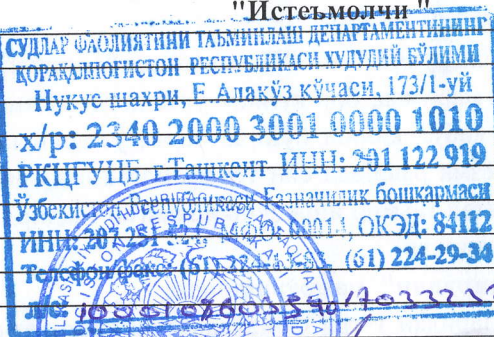 "Истеъмолчи"
СУДЛАР ФАОЛИЯТИНИ ТАЪМИНЛАШ ДЕПАРТАМЕНТИНИНГ
ҚОРАҚАЛПОҒИСТОН РЕСПУБЛИКАСИ ҲУДУДИЙ БЎЛИМИ
Нукус шахри, Е.Алакўз кўчаси, 173/1-уй
х/р: 2340 2000 3001 0000 1010
РКЦГУЦБ г.Ташкент ИНН: 201 122 919
Ўзбекистон Республикаси Ғазначилик бошқармаси
ИНН: 00014, ОКЭД: 84112
Телефон/факс: (61) (61) 224-29-34